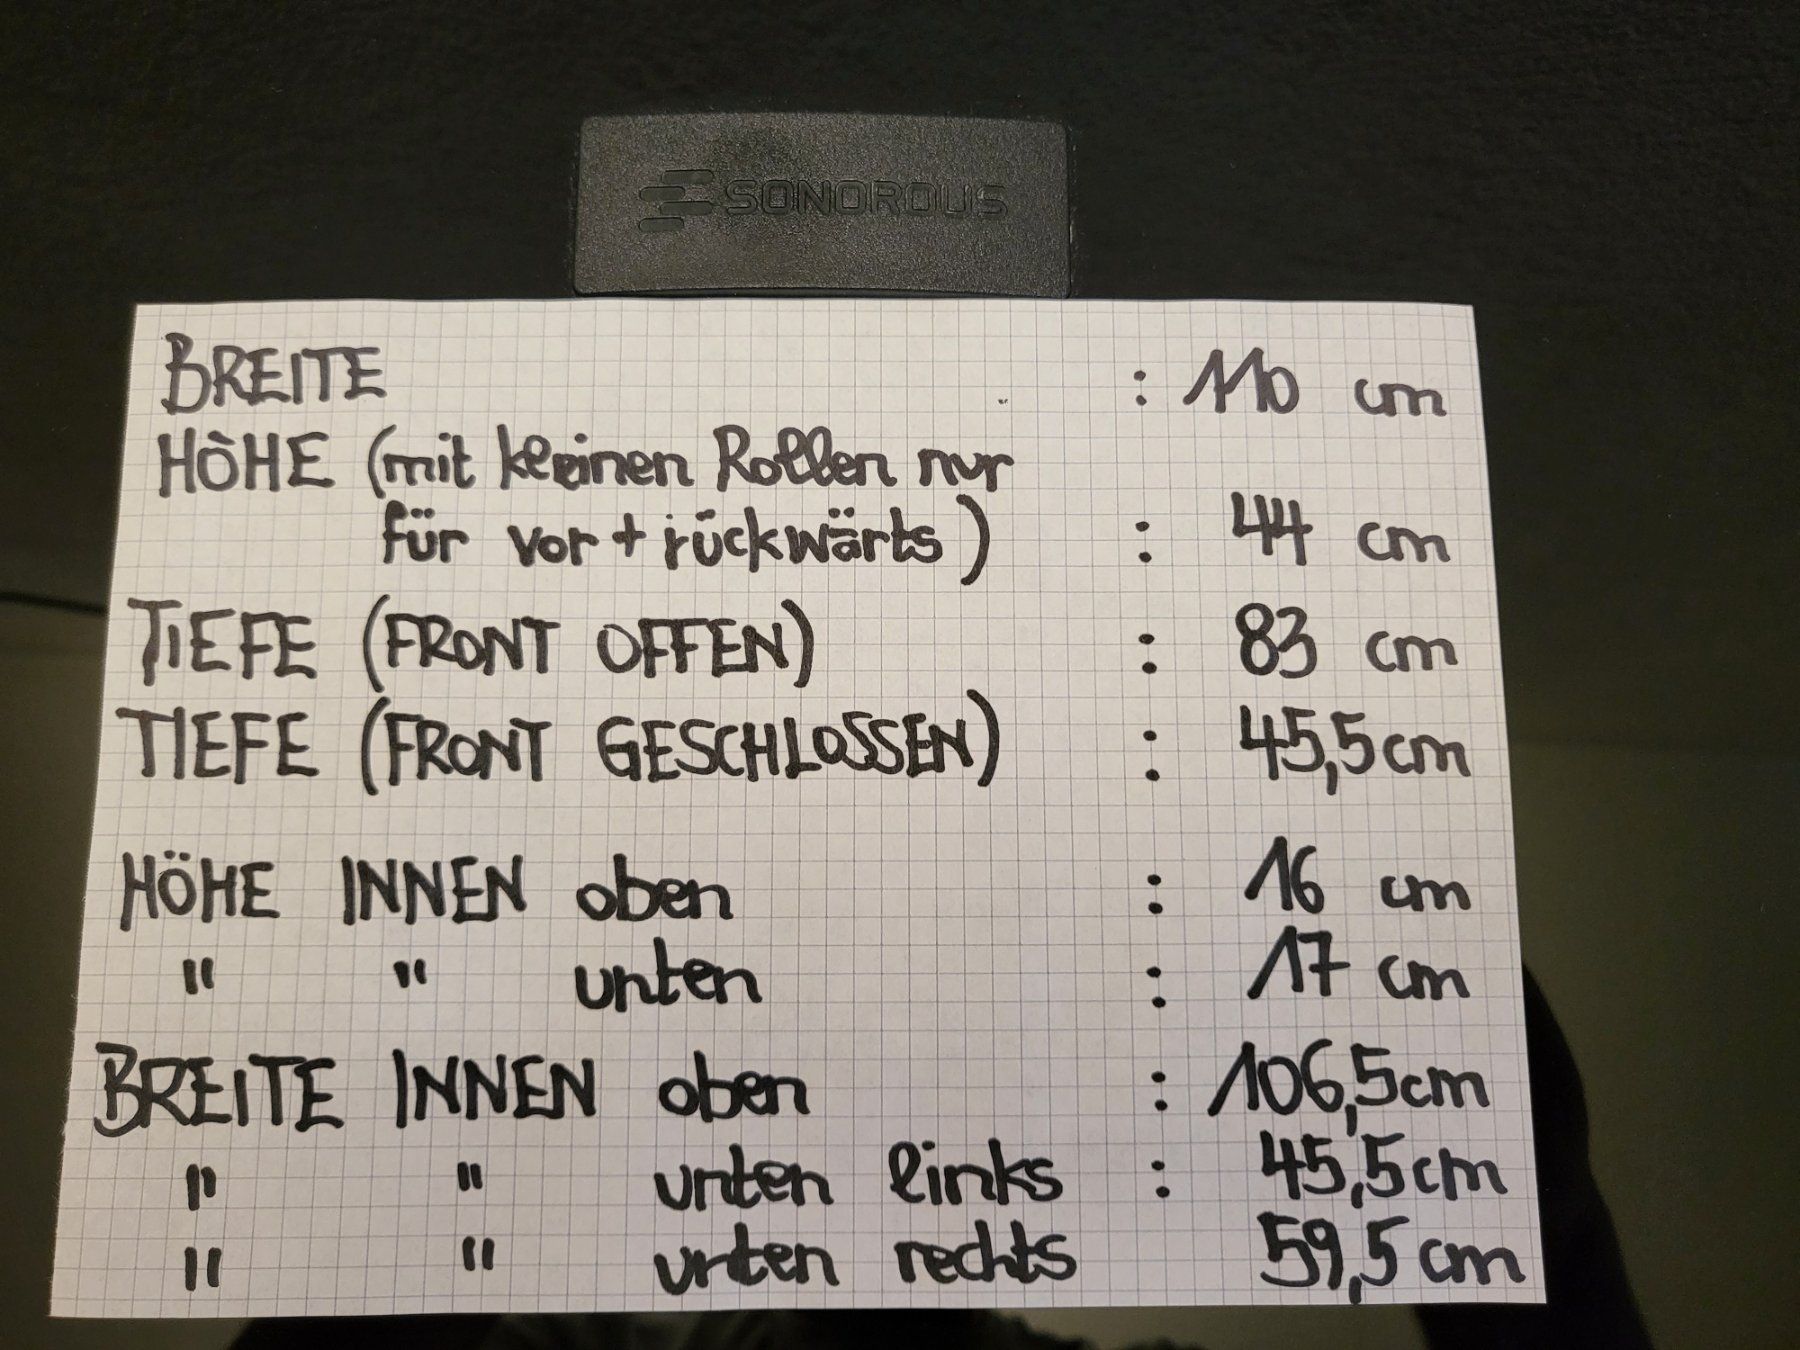 SONOROUS
BREITE : 110 cm
HÖHE (mit kleinen Rollen nur
für vor + rückwärts) : 44 cm
TIEFE (FRONT OFFEN) : 83 cm
TIEFE (FRONT GESCHLOSSEN) : 45,5 cm
HÖHE INNEN oben : 16 cm
" " unten : 17 cm
BREITE INNEN oben : 106,5 cm
" " unten links : 45,5 cm
" " unten rechts 59,5 cm